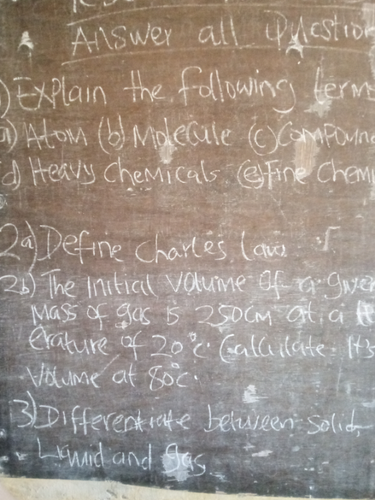 Answer all Question
) Explain the following terms
a) Atom (b) Molecule (c) Compoun
d) Heavy Chemicals (e) Fine Chemi
2a) Define Charles law
2b) The Initial Volume of a given
Mass of gas is 250cm at a te
erature of 20°c. Calculate. It's
Volume at 80°c.
3) Differentiate between solid,
Liquid and gas